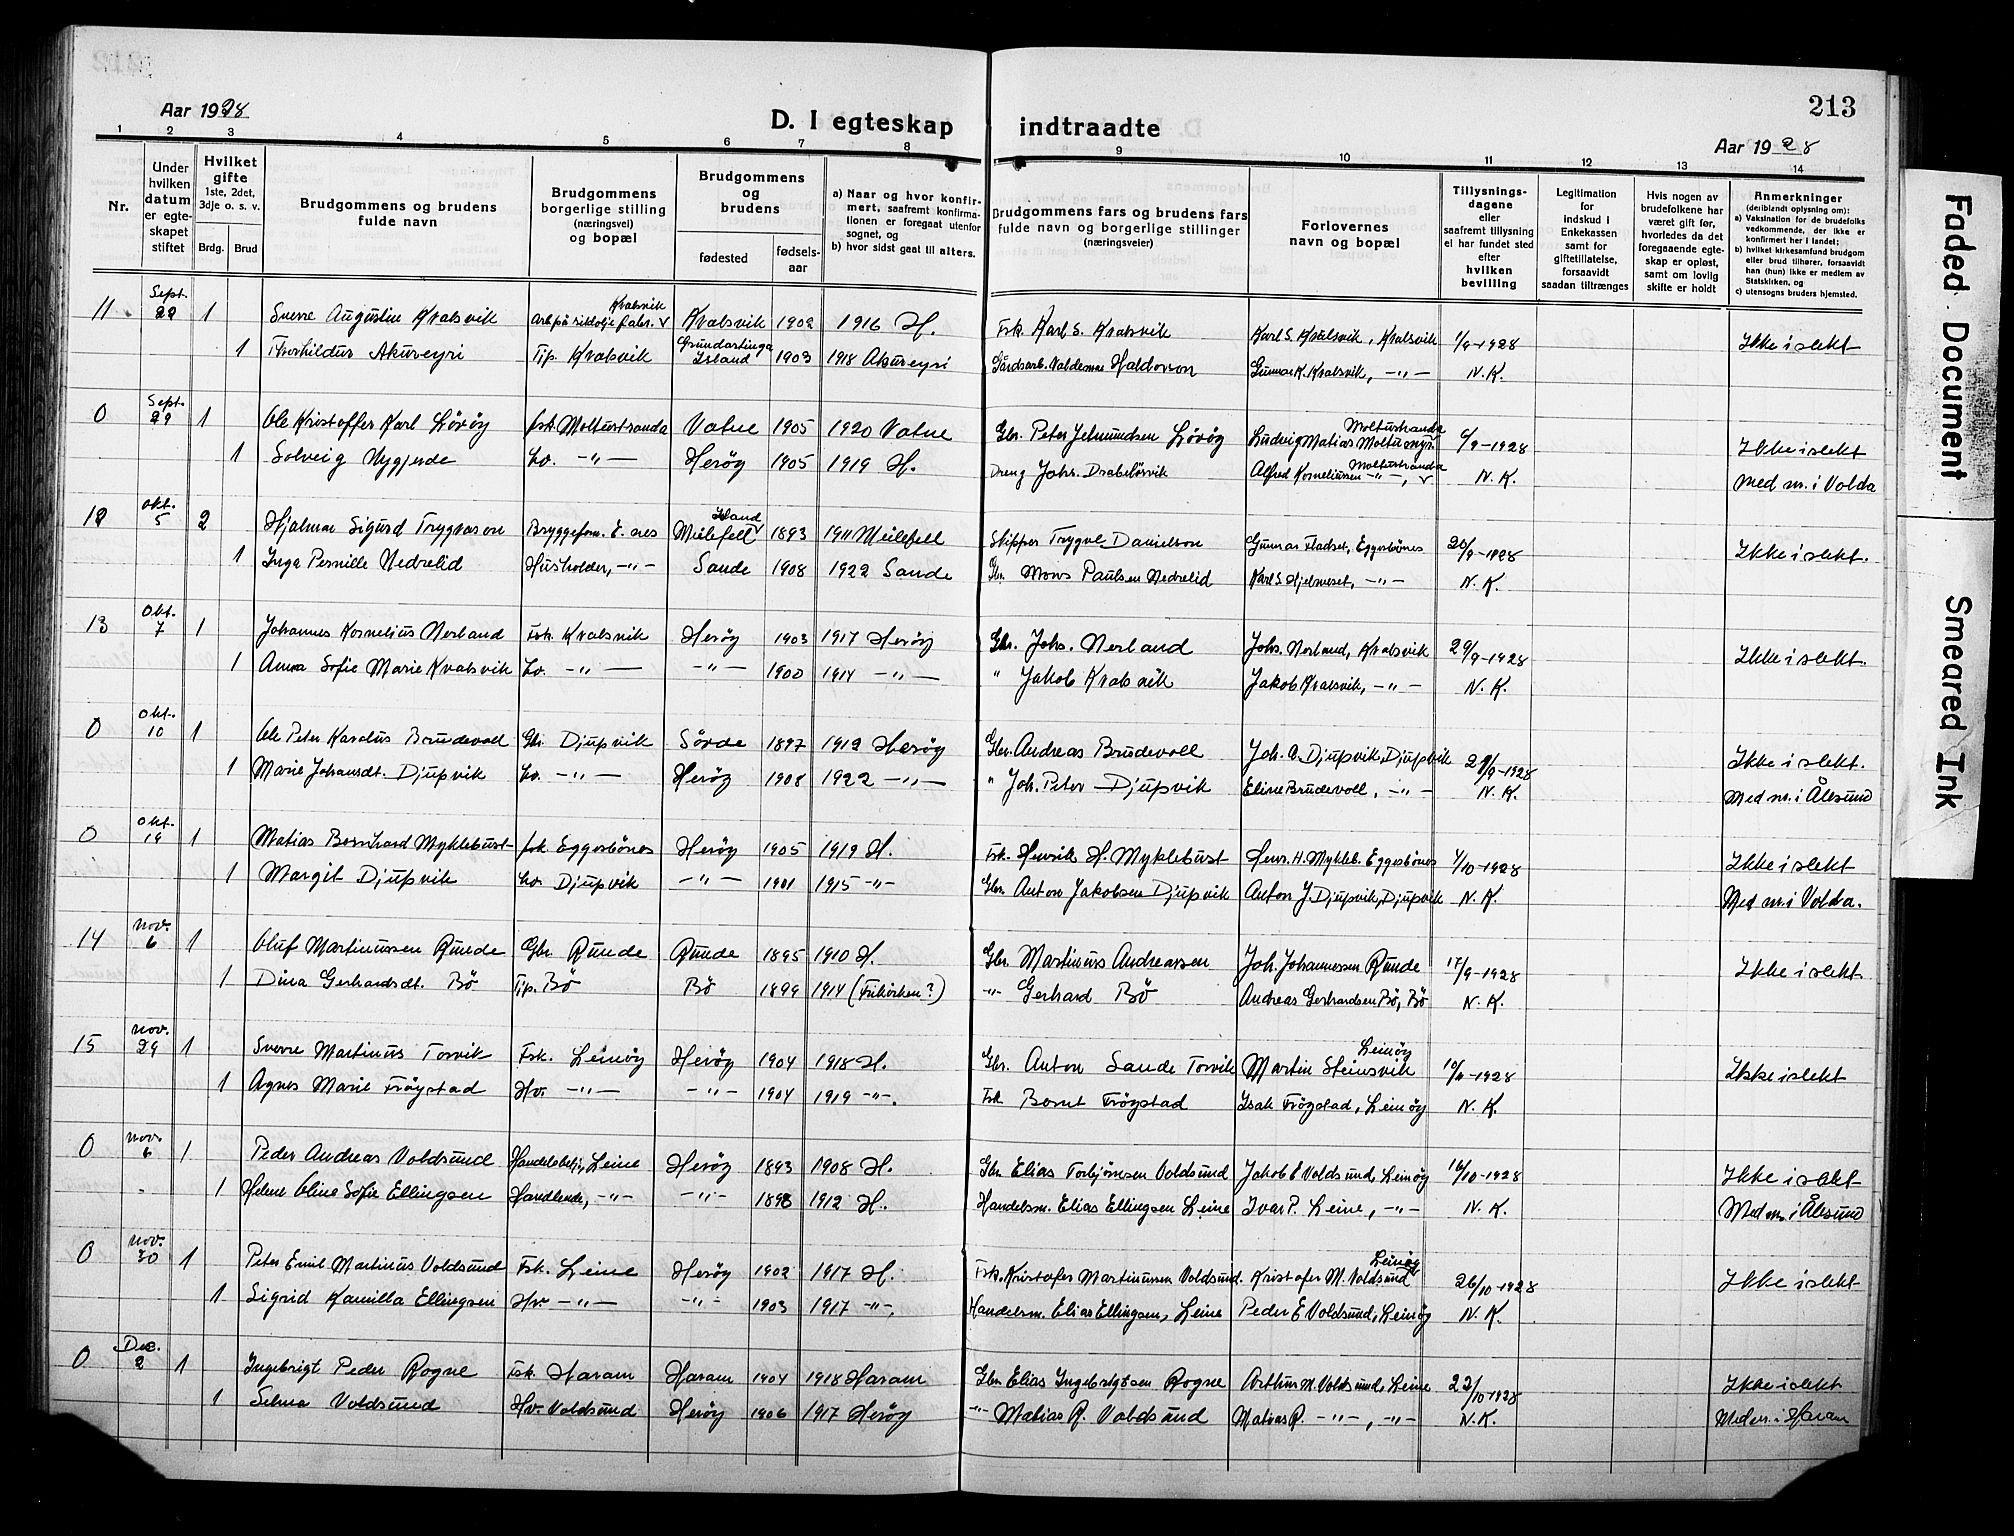 213
Aar 1928
D. I egteskap indtraadte
Aar 1928
1 2 3 4 5 6 7 8 9 10 11 12 13 14
Nr.
Under hvilken datum er egteskapet stiftet
Hvilket gifte
1ste, 2det, 3dje o. s. v.
Brdg. Brud
Brudgommens og brudens fulde navn
Brudgommens borgerlige stilling (næringsvei) og bopæl
Brudgommens og brudens
fødested
fødselsaar
a) Naar og hvor konfirmert, saafremt konfirmationen er foregaat utenfor sognet, og
b) hvor sidst gaat til alters.
Brudgommens fars og brudens fars fulde navn og borgerlige stillinger (næringsveier)
Forlovernes navn og bopæl
Tillysningsdagene eller saafremt tillysning ei har fundet sted efter hvilken bevilling
Legitimation for indskud i Enkekassen samt for giftetillatelse, forsaavidt saadan tiltrænges
Hvis nogen av brudefolkene har været gift før, hvorledes da det foregaaende egteskap er opløst, samt om lovlig skifte er holdt
Anmerkninger
(deriblandt oplysning om):
a) Vaksination for de brudefolks vedkommende, der ikke er konfirmert her i landet;
b) hvilket kirkesamfund brudgom eller brud tilhører, forsaavidt han (hun) ikke er medlem av Statskirken, og
c) utensogns bruders hjemsted.
11 Sept. 22 1 Sverre Augustin Kvalsvik Arb. på sildolje fabr. Kvalsvik Kvalsvik 1902 1916 H. Fsk. Karl S. Kvalsvik Karl S. Kvalsvik, Kvalsvik 1/9-1928 Ikke i slekt
1 Thorhildur Akureyri Tjp. Kvalsvik Grundartinga Island 1903 1918 Akureyri Gårdsarb. Valdemar Haldorson Gunnar K. Kvalsvik, -"- N.K.
0 Sept. 29 1 Ole Kristoffer Karl Lövöy fsk. Molturtranda Vatne 1905 1920 Vatne Gbr. Peter Jetmundsen Lövöy Ludvig Matias Moltumyr. Moltustranda 6/9-1928 Ikke i slekt
1 Solveig Nygjerde Hv. -"- Heröy 1905 1919 H. Dreng Johs. Drabelösvik Alfred Korneliussen -"-, Moltustranda N.K. Med nr. i Volda
12 Okt. 5 2 Hjalmar Sigurd Trygvason Bryggeform. E.nes Meilefell Island 1893 1911 Meilefell Skipper Trygve Danielson Gunnar Fladset, Eggesbönes 20/9-1928 Ikke i slekt.
1 Inga Pernille Nedrelid Husholder, -"- Sande 1908 1922 Sande Gbr. Mons Paulsen Nedrelid Karl S. Hjelmeset, -"- N.K.
13 Okt. 7 1 Johannes Kornelius Nerland Fsk. Kvalsvik Heröy 1903 1917 Heröy Gbr. Johs. Nerland Johs. Nerland, Kvalsvik 29/9-1928 Ikke i slekt.
1 Anna Sofie Marie Kvalsvik Hv. -"- -"- 1900 1914 -"- " Jakob Kvalsvik Jakob Kvalsvik, -"- N.K.
0 Okt. 10 1 Ole Peter Karolus Brudevoll Gbr. Djupvik Sövde 1897 1912 Heröy Gbr. Andreas Brudevoll Joh. A. Djupvik, Djupvik 21/9-1928 Ikke i slekt.
1 Marie Johansdt. Djupvik Hv. -"- Heröy 1908 1922 -"- " Joh. Peter Djupvik Eline Brudevoll, -"- N.K. Med nr. i Ålesund
0 Okt. 19 1 Matias Bernhard Myklebust fsk. Eggesbönes Heröy 1905 1919 H. Fsk. Henrik H. Myklebust Henr. H. Mykleb. Eggesbönes 4/10-1928 Ikke i slekt
1 Margit Djupvik Hv. Djupvik -"- 1901 1915 -"- Gbr. Anton Jakobsen Djupvik Anton J. Djupvik, Djupvik N.K. Med nr. i Volda.
14 nov. 6 1 Oluf Martinussen Runde Gbr. Runde Runde 1895 1910 H. Gbr. Martinus Andreassen Joh. Johannessen Runde 17/9-1928 Ikke i slekt
1 Dina Gerhardsdt. Bö Tjp. Bö Bö 1899 1914 (Frikirken?) -"- Gerhard Bö Andreas Gerhardsen Bö, Bö N.K.
15 nov. 29 1 Sverre Martinus Torvik Fsk. Leinöy Heröy 1904 1918 H. Gbr. Anton Sande Torvik Martin Steinsvik Leinöy 10/11-1928 Ikke i slekt
1 Agnes Marie Fröystad Hv. -"- -"- 1904 1919 -"-. Fsk Bernt Fröystad Isak Fröystad, Leinöy N.K.
0 nov. 6 1 Peder Andreas Voldsund Handelsbetj., Leine Heröy 1893 1908 H. Gbr Elias Torbjörnsen Voldsund Jakob E Voldsund, Leinöy 16/10-1928 Ikke i slekt
1 Helene Oline Sofie Ellingsen Handlende, -"- -"- 1898 1912 H. Handelsm. Elias Ellingsen Leine Ivar P. Leine, -"- N.K. Med nr. i Ålesund
0 nov. 30 1 Peter Emil Martinus Voldsund Fsk. Leine Heröy 1902 1917 H. Fsk. Kristofer Martinussen Voldsund. Kristofer M. Voldsund Leinöy 26/10-1928 Ikke i slekt
1 Sigrid Kamilla Ellingsen Hv -"- -"- 1903 1917 -"-. Handelsm. Elias Ellingsen, Leine Peder E Voldsund, Leinöy N.K.
0 Dec. 2 1 Ingebrigt Peder Rogne Fsk. Haram Haram 1904 1918 Haram Gbr Elias Ingebrigtsen Rogne Arthur M. Voldsund, Leine 22/10-1928 Ikke i slekt
1 Selma Voldsund Hv. Voldsund Heröy 1906 1917 Heröy -"- Matias R. Voldsund Matias R. -"-, -"- N.K. Med nr. i Haram
Faded Document
Smeared Ink